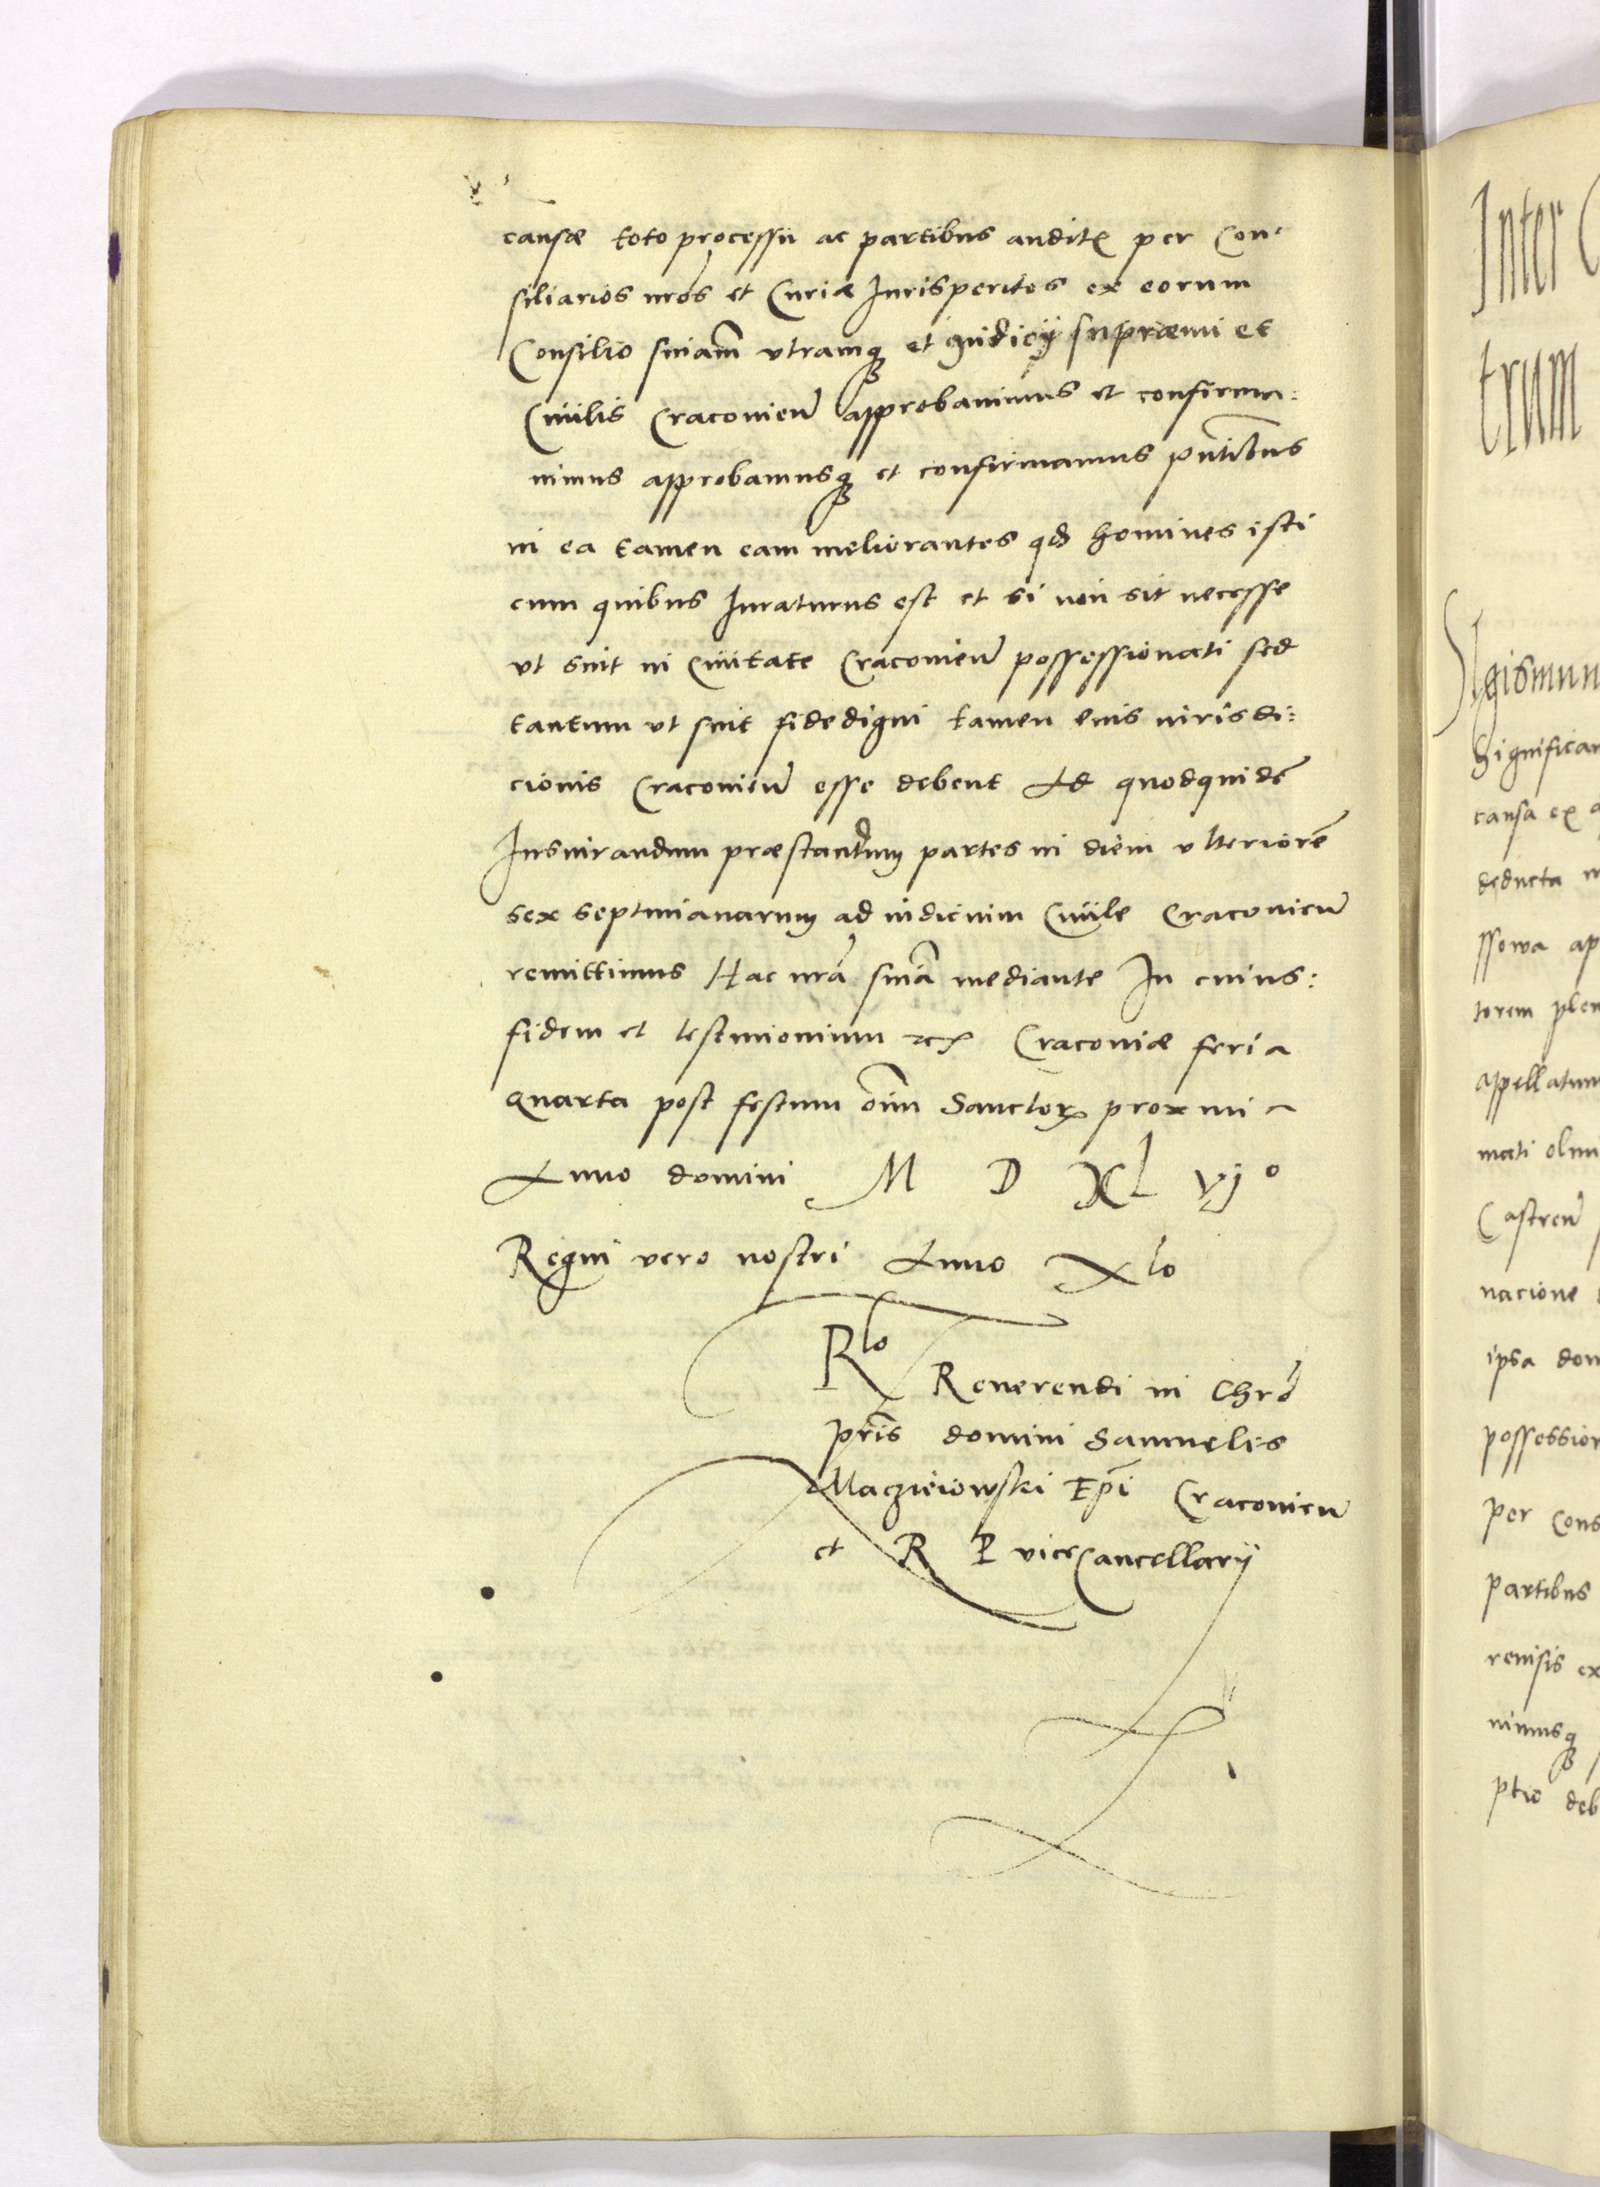 causæ toto processu ac partibus auditꝭ per Con-
siliarios nr̃os et Curiæ Jurisperitos ex eorum
Consilio sniam̃ utramqꝫ et Judicÿ supræmi et
Ciuilis Cracouieñ approbauimus et confirma:
uimus approbamusqꝫ et confirmamus pñtibus
in ea tamen eam meliorantes qd̃ homines isti
cum quibus Juraturus est et si non sit necesse
ut sint in Ciuitate Cracouieñ possessionati sed
tantum ut sint fidedigni tamen euis iurisdi:
cionis Cracouieñ esse debent Ad quodquidẽ
Jusiurandum præstandum partes in diem ulteriorẽ
sex septimanarum ad iudicium Ciuile Cracouieñ
remittimus Hac nrã sniã mediante In cuius:
fidem et testimonium etc Cracouiæ feria
quarta post festum oĩm Sanctoꝝ proxima
Anno domini M D XL vjº
Regni vero nostri Anno Xlo
Rlo Reuerendi in Chrõ
pr̃is domini Samuelis
Macziejowski Epĩ Cracouieñ
et R P viceCancellarÿ
Inter
trum
SIgismun
Significam
causa ex
deducta
ssowa ap
torem plen
appellatum
mati olim
Castreñ
nacione
ipsa dom
possession
per Cons
partibus
reuisis ex
uimusqꝫ
ptio deb